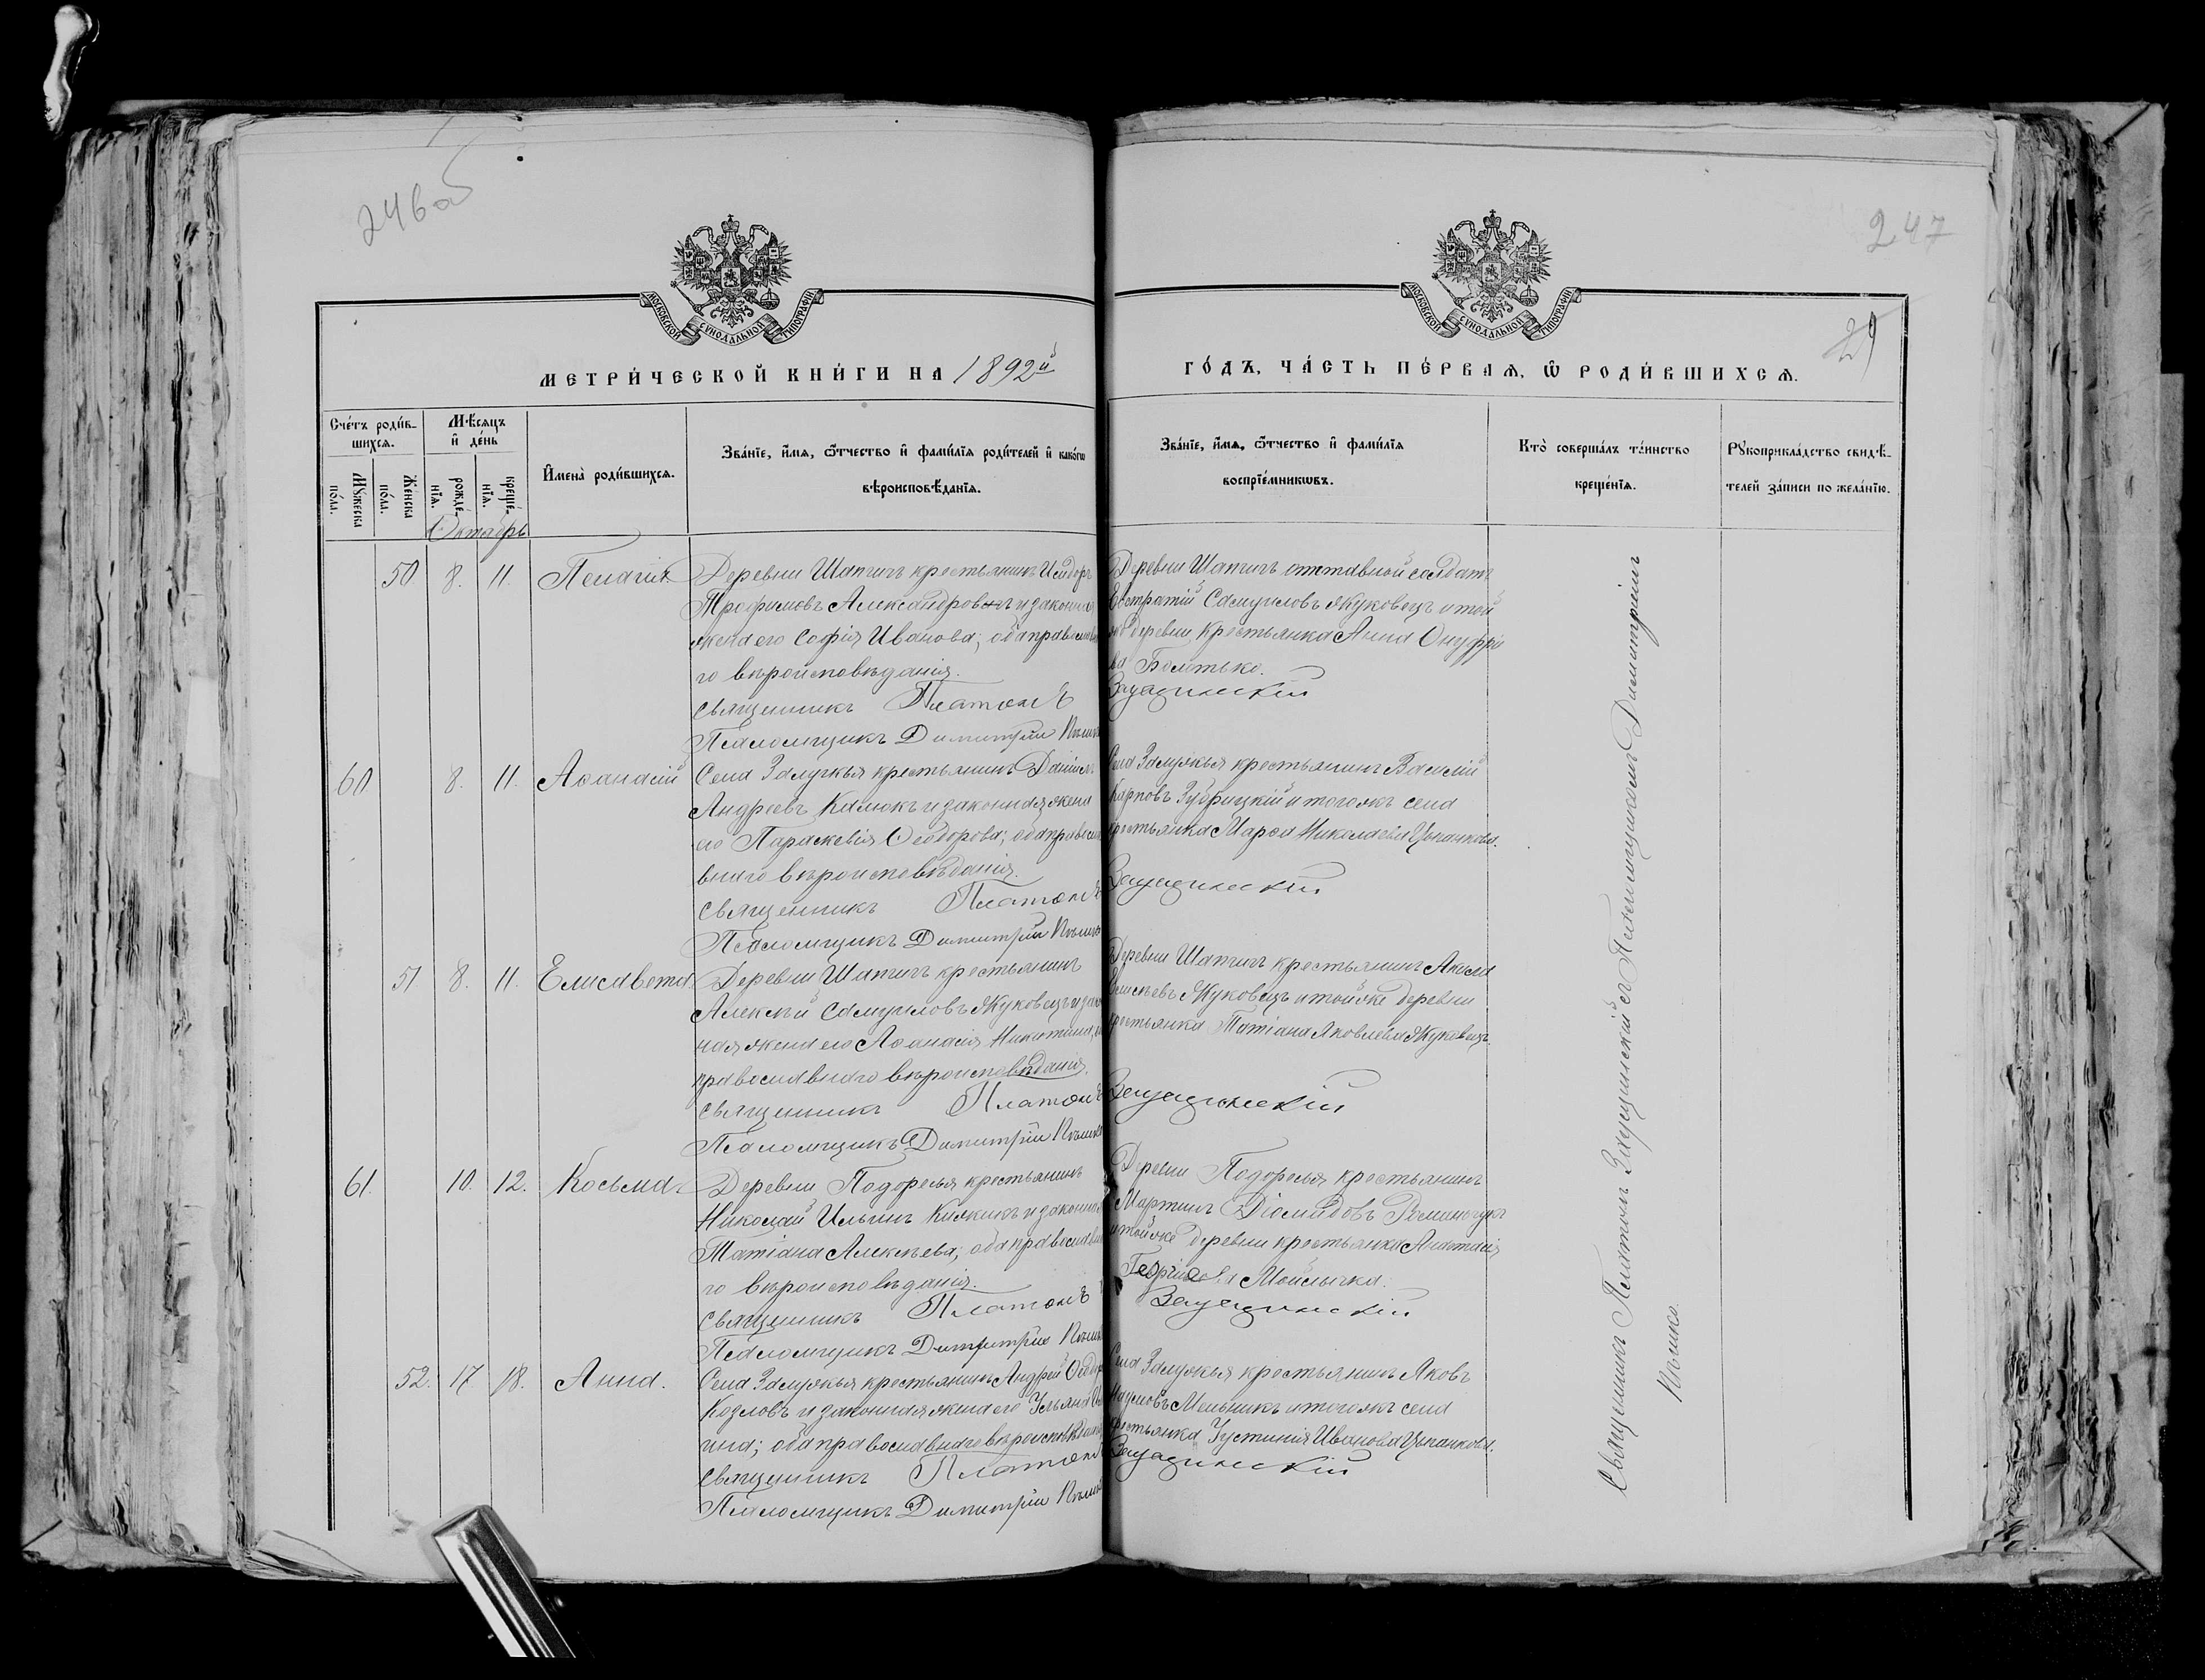 246об
247
29
МОСКОВСКОЙ СУНОДАЛЬНОЙ ТИПОГРАФІИ
МОСКОВСКОЙ СУНОДАЛЬНОЙ ТИПОГРАФІИ
МЕТРИ́ЧЕСКОЙ КНИ́ГИ НА 1892й
ГО́ДЪ, ЧА́СТЬ ПЕ́РВАѦ, Ѡ҆ РОДИ́ВШИХСѦ.
Сче́тъ роди́в-
шихсѧ.
Мꙋ́жеска по́ла.
Же́нска по́ла.
Мѣ́сѧцъ и҆ де́нь
рожде́-нїѧ.
креще́-нїѧ.
И҆мена̀ роди́вшихсѧ.
Зва́нїе, и҆́мѧ, ѻ҆́тчество и҆ фами́лїѧ роди́телей и҆ како́гѡ
вѣроисповѣ́данїѧ.
Зва́нїе, и҆́мѧ, ѻ҆́тчество и҆ фами́лїѧ
воспрїе́мникѡвъ.
Кто̀ соверша́лъ та́инство
креще́нїѧ.
Рꙋкоприкла́дство свидѣ́-
телей за́писи по жела́нїю.
Октябрь
50 8. 11. Пелагія
Деревни Шапчиц крестьянинъ Исидоръ
Трофимовъ Александров и законная
жена его Софія Иванова; оба православна
го вѣроисповѣданія.
Священникъ Платонъ
Псаломщикъ Димитрій
Деревни Шапчицъ отставной солдатъ
Евстратій Самуиловъ Жуковецъ и той
же деревни крестьянка Анна Онуфріе
ва Болтько.
60 8. 11. Аѳанасій
Села Залужья крестьянинъ Даніилъ
Андреевъ Калюкъ и законная жена
его Параскевія Ѳеодорова; оба правосла
внаго вѣроисповѣданія.
Священникъ Платонъ
Псаломщикъ Димитрій
Села Залужья крестьянинъ Василій
Карповъ Зубрицкій и того жъ села
крестьянка Марѳа Николаева Цыганкова.
51 8. 11. Елисавета
Деревни Шапчицъ крестьянинъ
Алексѣй Самуиловъ Жуковецъ и закон
ная жена его Аѳанасія Никитина, оба
православнаго вѣроисповѣданія.
Священникъ Платонъ
Псаломщикъ Димитрій
Деревни Шапчицъ крестьянинъ
Жуковецъ и той же деревни
крестьянка Татіана Яковлева Жуковецъ.
61. 10. 12. Косьма
Деревни Подоресья крестьянинъ
Николай Ильинъ и законная
Татіана Алексѣева; оба православна
го вѣроисповѣданія.
Священникъ Платонъ
Псаломщикъ Димитрій
Деревни Подоресья крестьянинъ
Мартинъ Діомидовъ
и той же деревни крестьянка Анастасія
Георгіева
52. 17 18. Анна.
Села Залужья крестьянинъ Андрей Ѳеодоро
Козловъ и законная жена его Ульяна
оба православнаго вѣроисповѣданія
Священникъ Платонъ
Псаломщикъ Димитрій
Села Залужья крестьянинъ Яковъ
Наумовъ Мельникъ и того жъ села
крестьянка Іустинія Иванова Цыганкова.
Священникъ Платонъ съ Псаломщикомъ Димитріемъ